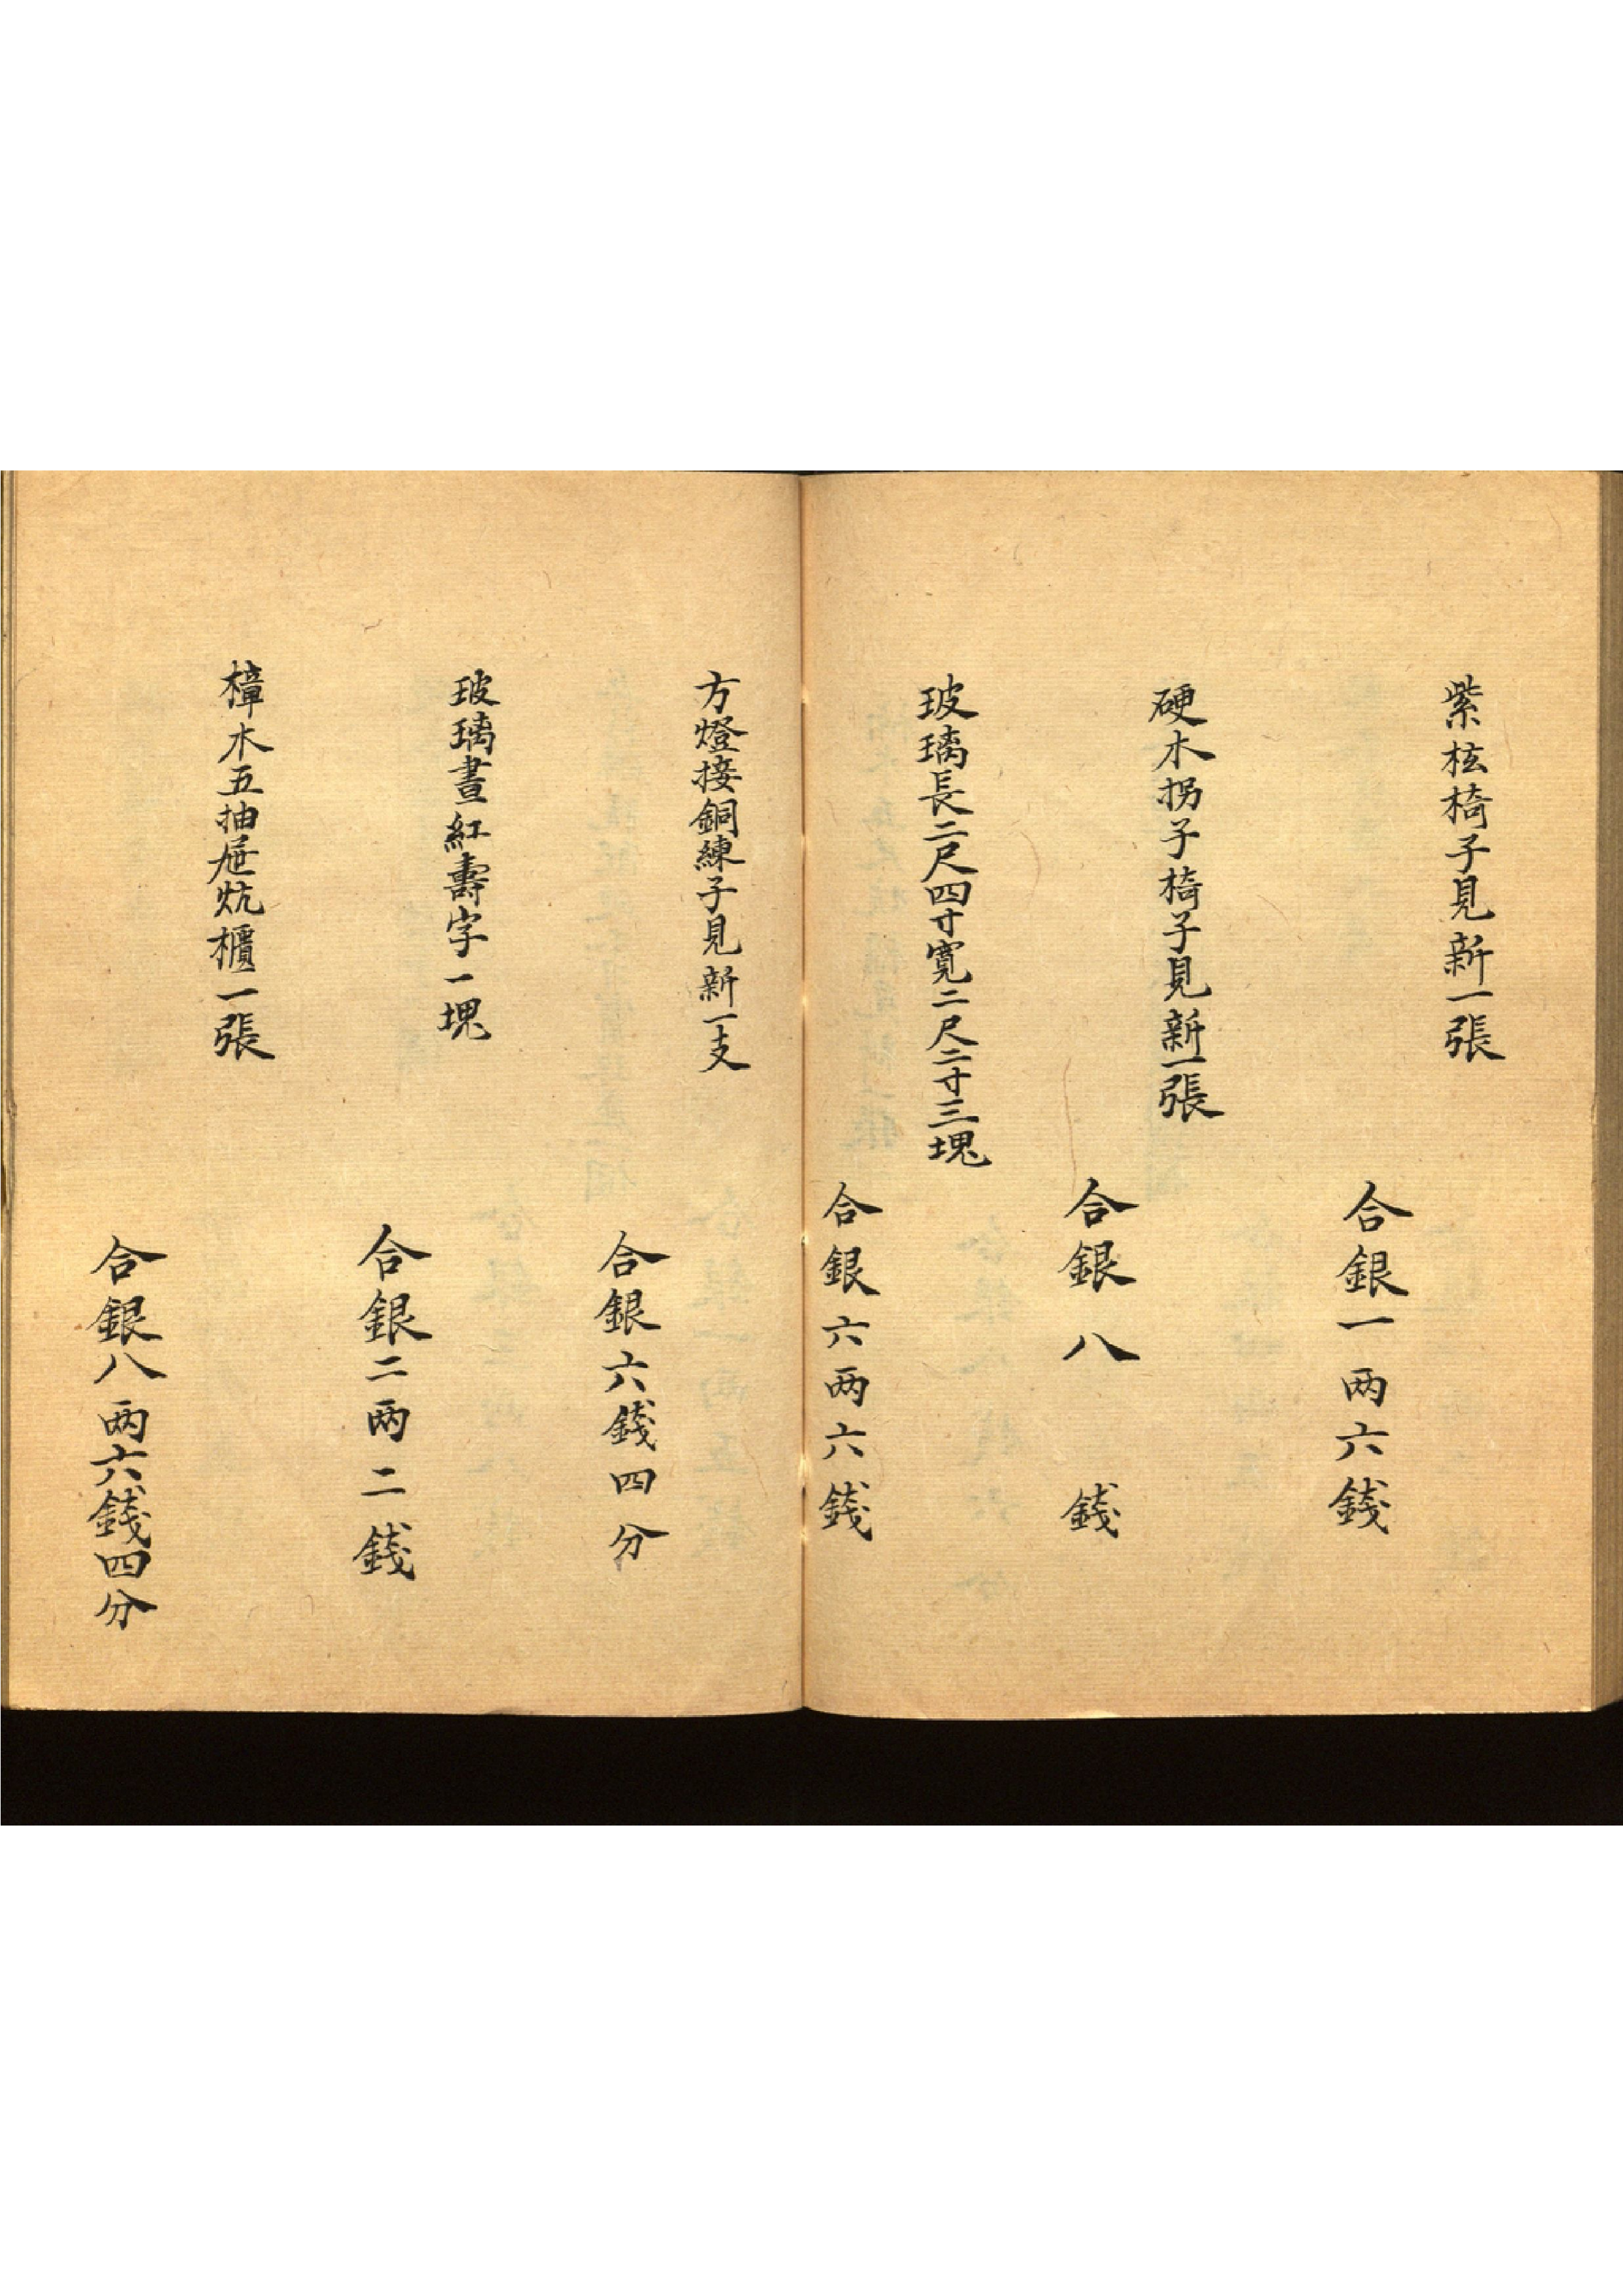 紫柷椅子見新一張
合銀一両六錢
硬木拐子椅子見新一張
合銀八錢
玻璃長二尺四寸寬二尺二寸三塊
合銀六両六錢
方燈接銅練子見新一支
合銀六錢四分
玻璃畫紅壽字一塊
合銀二両二錢
樟木五抽屜炕櫃一張
合銀八両六錢四分